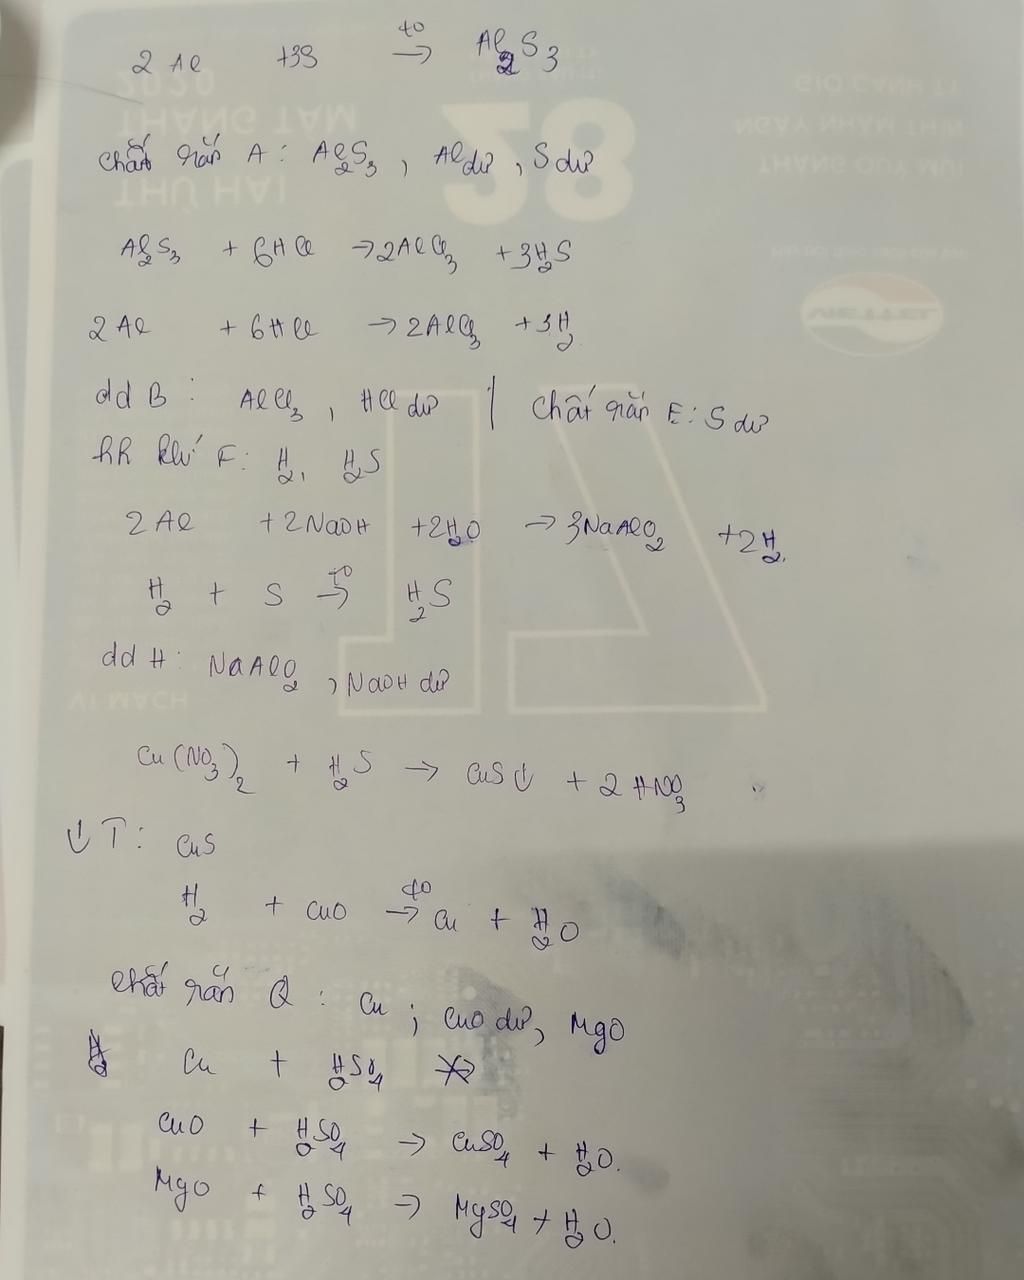 2Al + 3S t° → Al2S3
Chất rắn A: Al2S3, Al dư, S dư
Al2S3 + 6HCl → 2AlCl3 + 3H2S
2Al + 6HCl → 2AlCl3 + 3H2
dd B: AlCl3, HCl dư | Chất rắn E: S dư
hh khí F: H2, H2S
2Al + 2NaOH + 2H2O → 3NaAlO2 + 2H2.
H2 + S t° → H2S
dd H: NaAlO2, NaOH dư
Cu(NO3)2 + H2S → CuS↓ + 2HNO3
↓ T: CuS
H2 + CuO t° → Cu + H2O
Chất rắn Q: Cu; CuO dư, MgO
Cu + H2SO4 ↛
CuO + H2SO4 → CuSO4 + H2O.
MgO + H2SO4 → MgSO4 + H2O.
2020
THÁNG TÁM
THỨ HAI
28
GIỜ CANH TÝ
NGÀY NHÂM THÌN
THÁNG QUÝ MÙI
VIETTEL
17
VI MẠCH